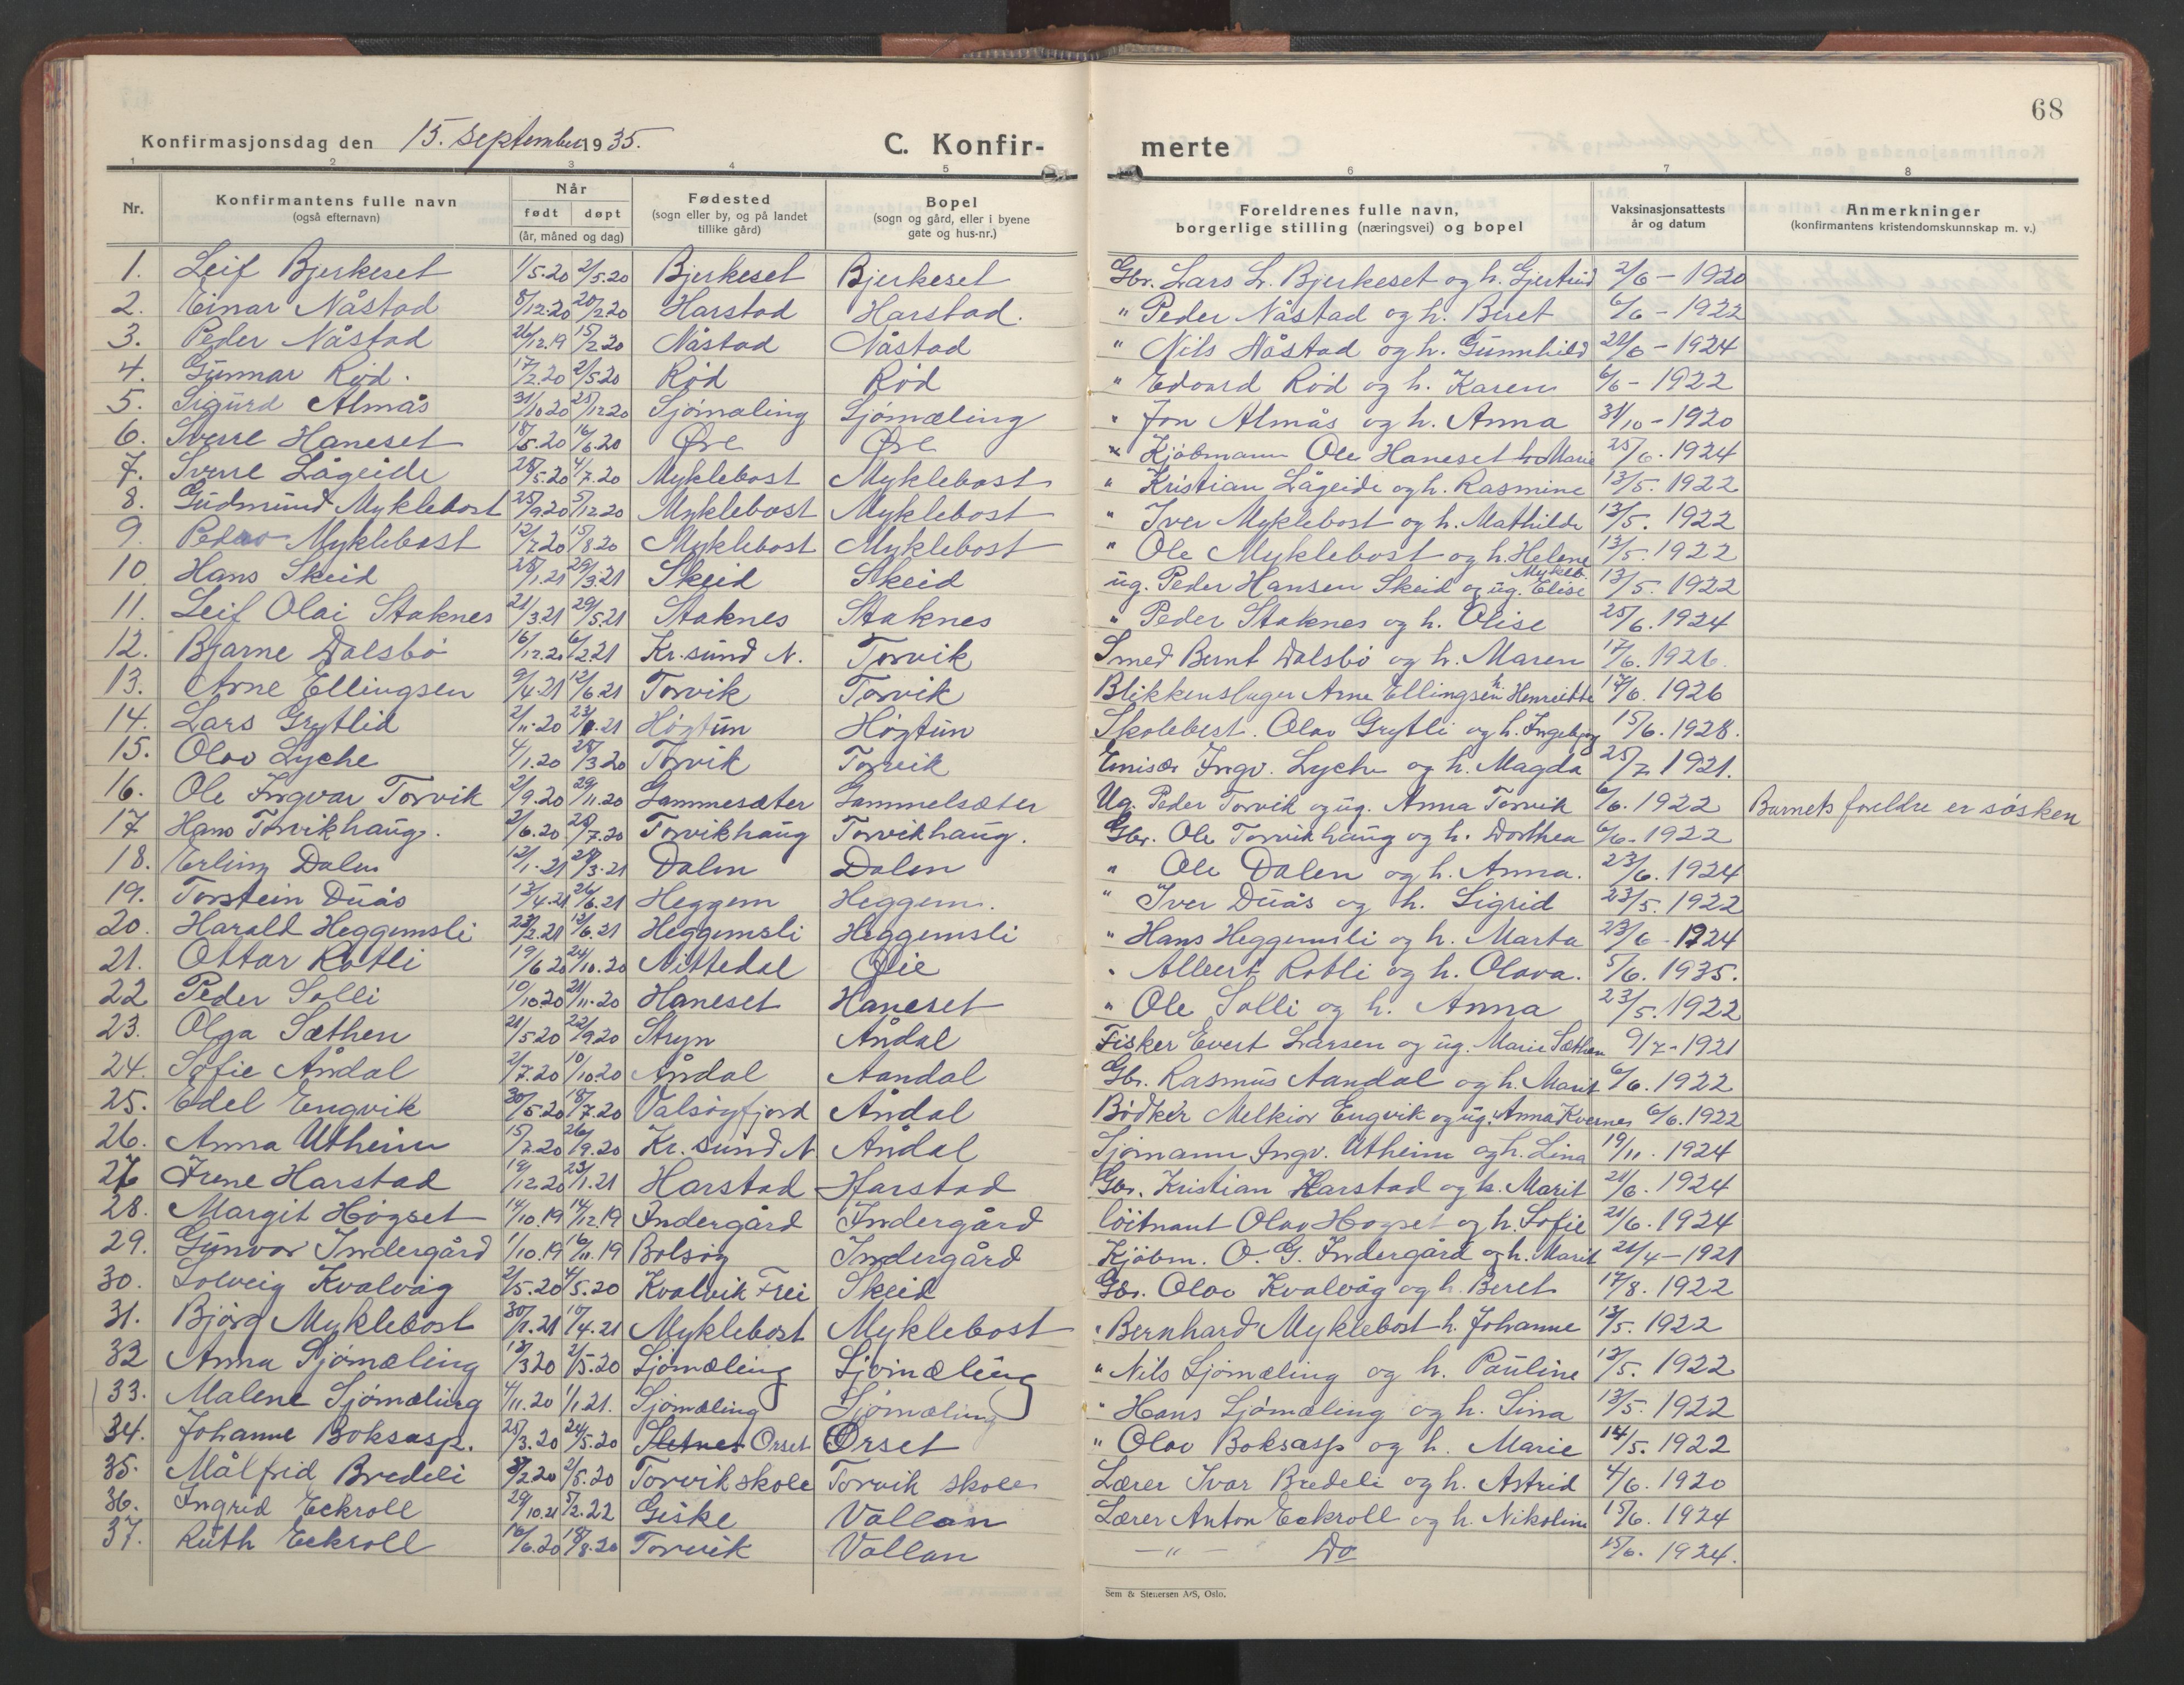 68
Konfirmasjonsdag den 15. september 1935.
C. Konfir-
merte
1 2 3 4 5 6 7 8
Nr. Konfirmantens fulle navn (også efternavn) Når født døpt (år, måned og dag) Fødested (sogn eller by, og på landet tillike gård) Bopel (sogn og gård, eller i byene gate og hus-nr.) Foreldrenes fulle navn, borgerlige stilling (næringsvei) og bopel Vaksinasjonsattests år og datum Anmerkninger (konfirmantens kristendomskunnskap m. v.)
1. Leif Bjerkeset 1/5.20 2/5.20 Bjerkeset Bjerkeset Gbr. Lars L. Bjerkeset og h. Gjertrud 2/6 - 1920
2. Einar Nåstad 8/12.20 20/2.20 Harstad Harstad. " Peder Nåstad og h. Beret 6/6 - 1922
3. Peder Nåstad 26/12.19 15/2.20 Nåstad Nåstad " Nils Nåstad og h. Gunnhild 21/6 - 1924
4. Gunnar Rød. 17/2.20 2/5.20 Rød Rød " Edvard Rød og h. Karen 6/6 - 1922
5. Sigurd Almås 31/10.20 25/12.20 Sjömæling Sjömæling " Jon Almås og h. Anna 31/10 - 1920
6. Sverre Haneset 18/5.20 16/6.20 Øre Øre Kjöbmann Ole Haneset h. Marie 25/6. 1924
7. Sverre Lågeide 28/5.20 4/7.20 Myklebost Myklebost " Kristian Lågeide og h. Rasmine 13/5. 1922
8. Gudmund Myklebost 25/9.20 5/12.20 Myklebost Myklebost " Iver Myklebost og h. Mathilde 13/5. 1922
9. Peder Myklebost 12/7.20 15/8.20 Myklebost Myklebost " Ole Myklebost og h. Helene 13/5. 1922
10. Hans Skeid 28/1.21 29/3.21 Skeid Skeid ug. Peder Hansen Skeid og ug. Elise Mykleb. 13/5. 1922
11. Leif Olai Staknes 21/3.21 29/5.21 Staknes Staknes " Peder Staknes og h. Olise 25/6. 1924
12. Bjarne Dalsbö 16/12.20 6/2.21 Kr.sund N. Torvik Smed Bernt Dalsbö og h. Maren 17/6. 1926.
13. Arne Ellingsen 9/4.21 12/6.21 Torvik Torvik Blikkenslager Arne Ellingsen h. Henriette 17/6. 1926
14. Lars Grytlid 2/11.20 23/1.21 Högtun Högtun Skolebest. Olav Grytli og h. Ingebjørg 15/6. 1928.
15. Olav Lyche 4/1.20 28/3.20 Torvik Torvik Emisær Ingv. Lyche og h. Magda 25/7 1921.
16. Ole Ingvar Torvik 2/9.20 29/11.20 Gammesæter Gammelsæter Ug. Peder Torvik og ug. Anna Torvik 6/6. 1922 Barnets foreldre er søsken
17 Hans Torvikhaug. 2/6.20 25/7.20 Torvikhaug Torvikhaug. Gbr. Ole Torvikhaug og h. Dorthea 6/6. 1922
18. Erling Dalen 12/1.21 28/3.21 Dalen Dalen " Ole Dalen og h. Anna. 23/6. 1924
19. Torstein Duås 13/4.21 26/6.21 Heggem Heggem. " Iver Duås og h. Sigrid 23/5. 1922
20. Harald Heggemsli 23/2.21 12/6.21 Heggemsli Heggemsli " Hans Heggemsli og h. Marta 23/6 - 1924
21. Ottar Rotli 19/6.20 24/10.20 Nittedal Øie " Albert Rotli og h. Olava. 5/6. 1935.
22 Peder Solli 10/10.20 21/11.20 Haneset Haneset " Ole Solli og h. Anna 23/5. 1922
23. Olga Sæthen 21/5.20 22/9.20 Stryn Åndal Fisker Evert Larsen og ug. Marie Sæthen 9/7 - 1921
24. Sofie Åndal 2/7.20 10/10.20 Åndal Aandal Gbr. Rasmus Aandal og h. Marit 6/6. 1922
25. Edel Engvik 30/5.20 18/7.20 Valsøyfjord Åndal Bödker Melkior Engvik og ug. Anna Kvernes 6/6. 1922
26. Anna Utheim 15/7.20 26/9.20 Kr. sund N Åndal Sjömann Ingv. Utheim og h. Lina 19/11. 1924
27 Irene Harstad 19/12.20 23/1.21 Harstad Harstad Gbr. Kristian Harstad og h. Marit 21/6. 1924
28. Margit Högset 14/10.19 14/12.19 Indergård Indergård Löitnant Olav Hogset og h. Sofie 21/6. 1924
29. Gunvor Indergård 1/10.19 16/11.19 Bolsøy Indergård Kjöbm. O. G. Indergård og h. Marit 21/4 - 1921
30. Solveig Kvalvåg 2/5.20 4/5.20 Kvalvik Frei Skeid Gbr. Olav Kvalvåg og h. Beret 17/8. 1922
31. Björg Myklebost 30/1.21 10/4.21 Myklebost Myklebost " Bernhard Myklebost h. Johanne 13/5. 1922
32 Anna Sjömæling 13/3.20 2/5.20 Sjömæling Sjömæling " Nils Sjömæling og h. Pauline 13/5. 1922
33. Malene Sjömæling 4/11.20 1/1.21. Sjömæling Sjömæling " Hans Sjömæling og h. Sina 13/5. 1922
34. Johanne Boksasp. 25/3.20 24/5.20 Orset Orset " Olav Boksasp og h. Marie 14/5. 1922
35. Målfrid Bredeli 8/2.20 2/5.20 Torvik skole Torvik skole Lærer Ivar Bredeli og h. Astrid 4/6. 1920
36. Ingrid Eckroll 29/10.21 5/2.22 Giske Vollan Lærer Anton Eckroll og h. Nikoline 15/6. 1924
37. Ruth Eckroll 16/6.20 18/8.20 Torvik Vollan - " - Do 15/6. 1924.
Sem & Stenersen A/S, Oslo.